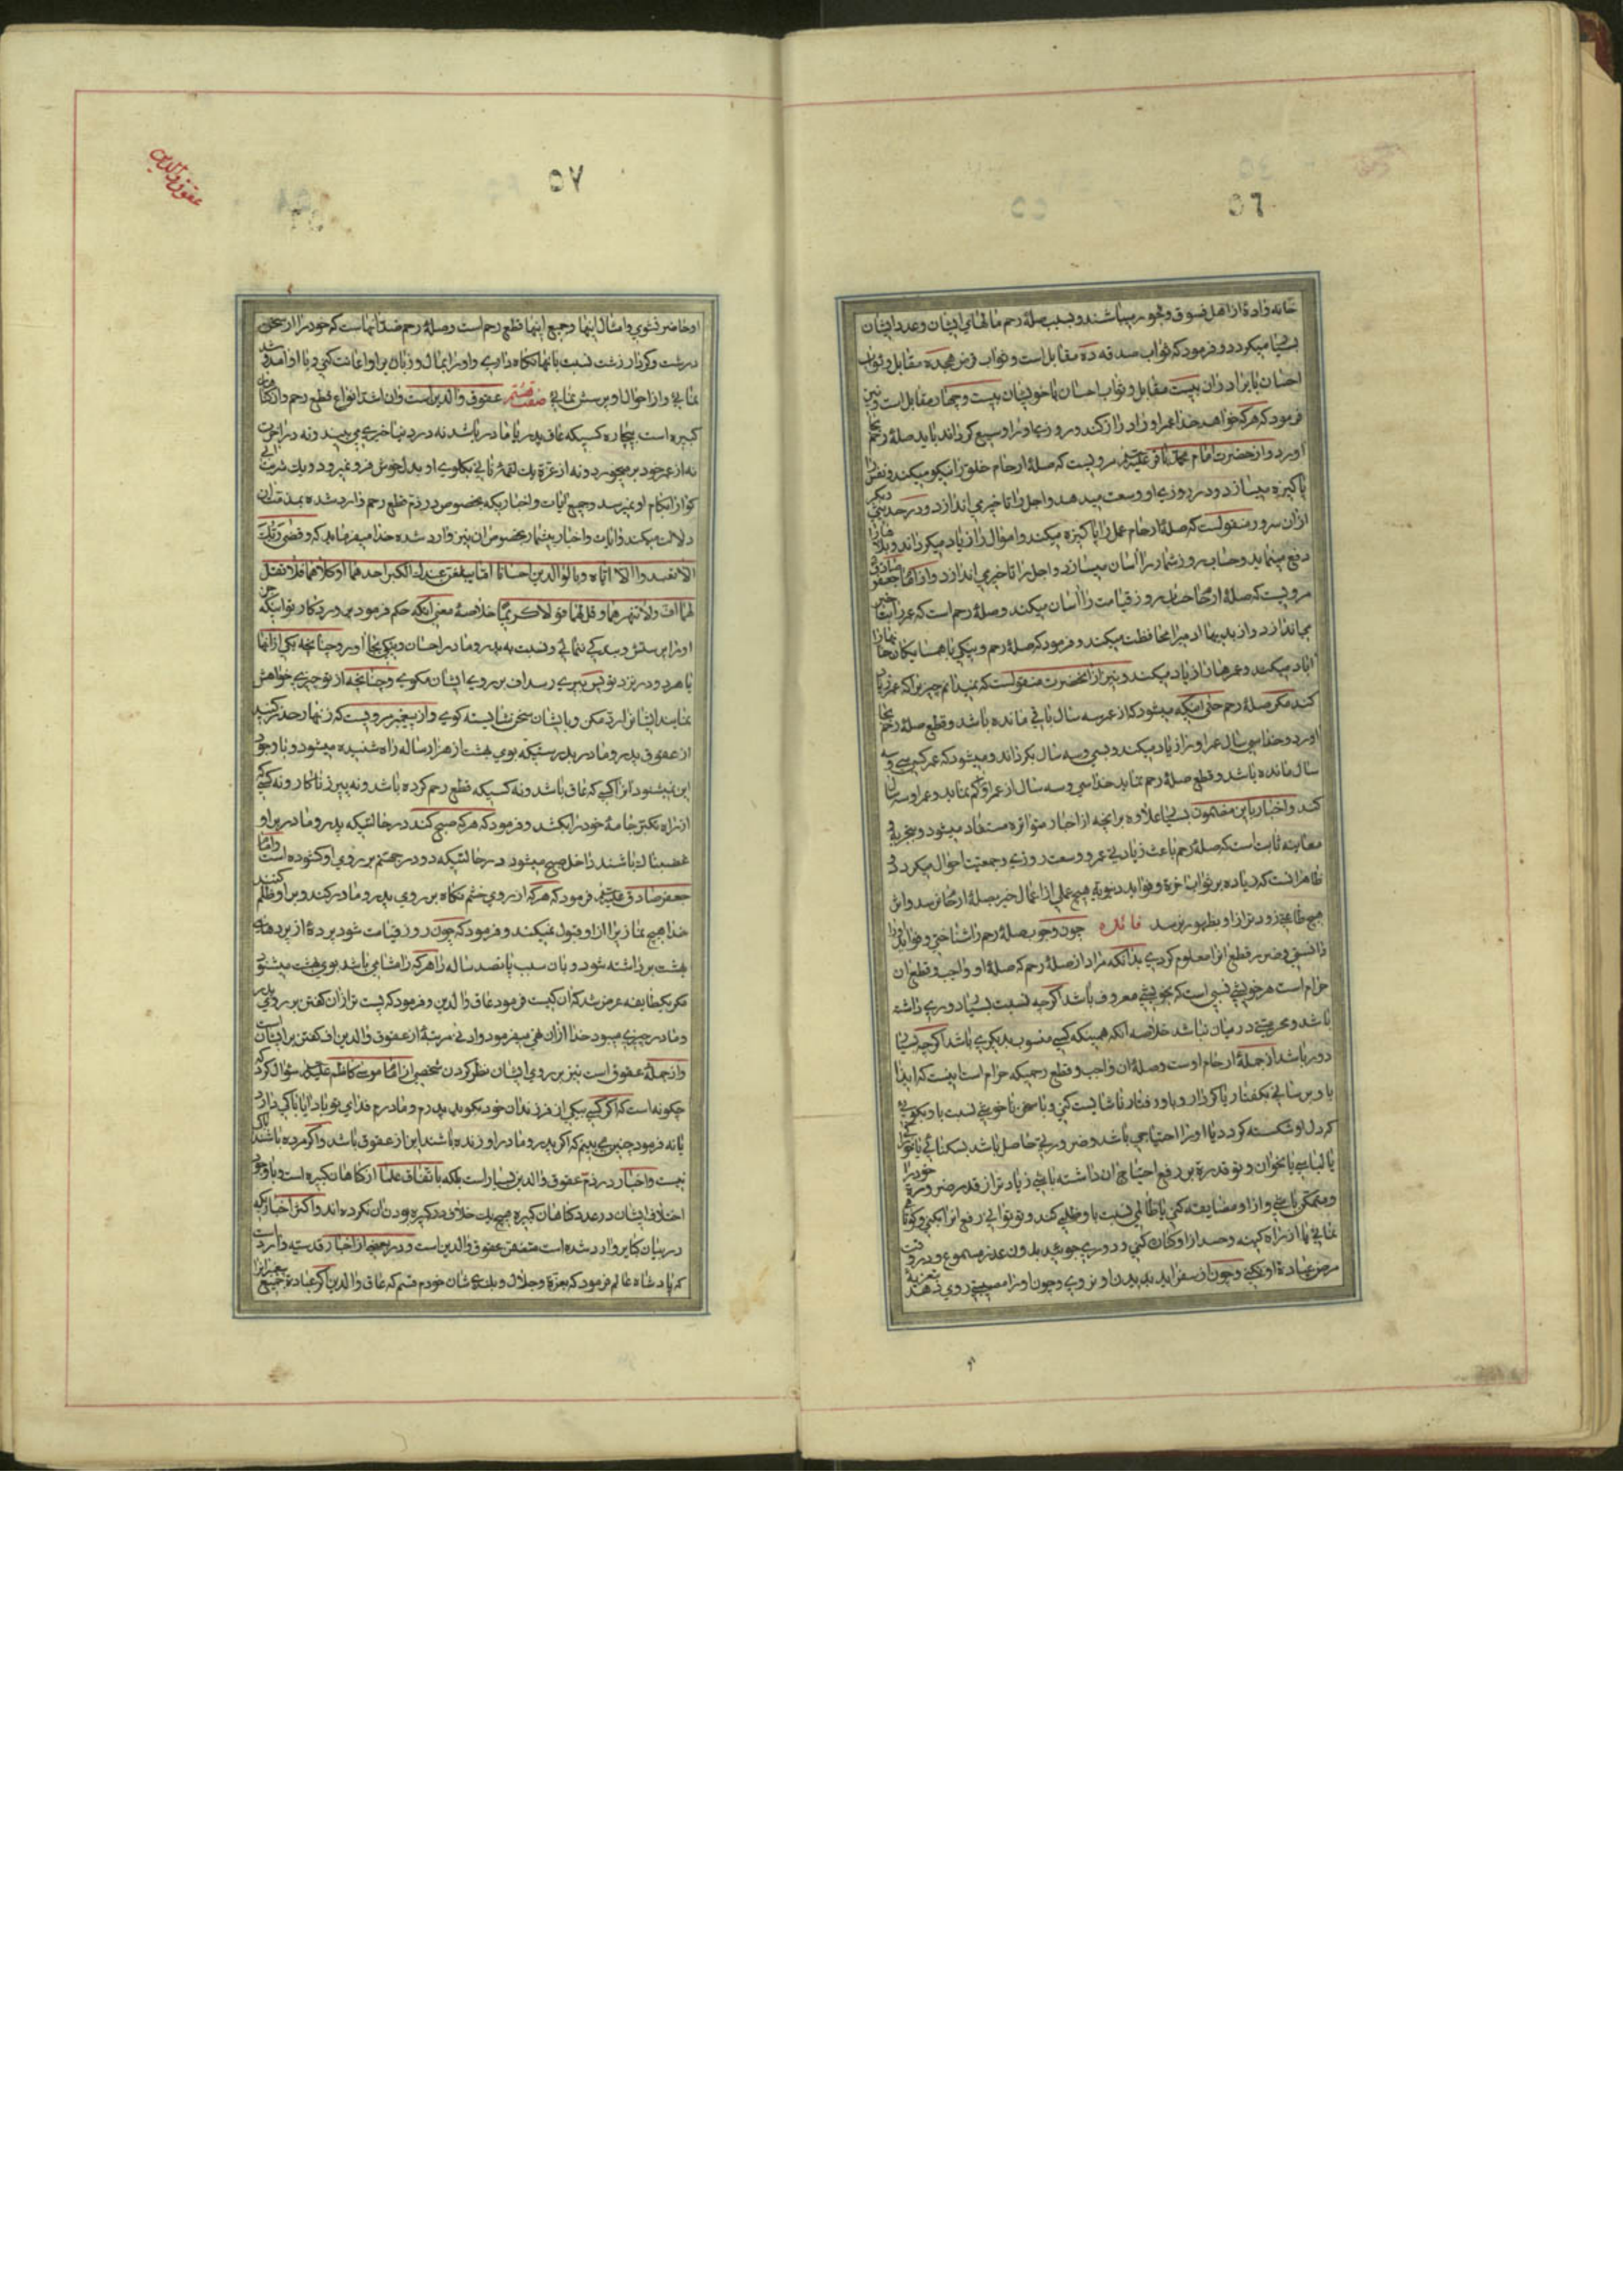 ٥٦
خانه واده از اهل فسوق و فجور میباشند و بسبب صلهٔ رحم مالهای ایشان و عدد ایشان
بسیار میگردد و فرمود که ثواب صدقه ده مقابل است و ثواب قرض هجده مقابل و ثواب
احسان با برادران بیست مقابل و ثواب احسان با خویشان بیست و چهار مقابل است و نیز
فرمود که هر که خواهد خدا عمر او را دراز کند و روزی او را وسیع گرداند باید صلهٔ رحم بجا
آورد و از حضرت امام محمد باقر علیه السلم مرویست که صلهٔ ارحام خلق را نیکو میکند و نفس را
پاکیزه میسازد و در روزی او وسعت میدهد و اجل را تاخیر می اندازد و در حدیثی دیگر
از آن سرور منقولست که صلهٔ ارحام عمل را پاکیزه میکند و اموال را زیاد میگرداند و بلاها را
دفع مینماید و حساب روز شمار را آسان میسازد و اجل را تاخیر می اندازد و از امام جعفر صادق
مرویست که صلهٔ ارحام حساب روز قیامت را آسان میکند و صلهٔ رحم است که عمر را بتاخیر
می اندازد و از بدیها آدمی را محافظت میکند و فرمود که صلهٔ رحم و نیکی با همسایگان خانها را
آباد میکند و عمرها را زیاد میکند و نیز از آنحضرت منقولست که نمیدانم چیزیرا که عمر را زیاد
کند مگر صلهٔ رحم حتی اینکه میشود که از عمر سه سال باقی مانده باشد و قطع صلهٔ رحم بجا
آورد و خدا سی سال عمر او را زیاد میکند و سی و سه سال بگرداند و میشود که عمر کسی سی و سه
سال مانده باشد و قطع صلهٔ رحم نماید خدا سی و سه سال از عمر او کم نماید و عمر او سه سال
کند و اخبار باین مضمون بسیار علاوه بر آنچه از اخبار متواتره مستفاد میشود و بتجربه و
معاینه ثابت است که صلهٔ رحم باعث زیادتی عمر و وسعت روزی و جمعیت احوال میگردد و
ظاهر آنست که زیاده بر ثواب آخرة و فواید دنیویة هیچ عملی از اعمال خیر بصلهٔ ارحام نرسد و اثر
هیچ طاعتی زودتر از او بظهور نرسد فائده چون وجوب صلهٔ رحم را شناختی و فواید آنرا
دانستی و ضرر قطع آنرا معلوم کردی بدانکه مراد از صلهٔ رحم که صلهٔ او واجب و قطع آن
حرام است هر خویشی نسبی است که بخویشی معروف باشد اگرچه نسبت بسیار دوری داشته
باشد و محرمیتی در میان نباشد خلاصه آنکه همینکه کسی منسوب بدیگری باشد اگرچه بسیار
دور باشد از جملهٔ ارحام اوست و صلهٔ آن واجب و قطع رحمیکه حرام است اینست که ایذا
باو برسانی بگفتار یا کردار و یا رفتار ناشایست کنی و یا سخن ناخوشی نسبت باو بگویی
که دل او شکسته گردد یا او را احتیاجی باشد و ضرورتی حاصل باشد بسکنائی یا
یا لباسی یا بخوان و تو قدرة بر رفع احتیاج آن داشته باشی زیادتر از قدر ضرورة خود را
و متمکن باشی و از او مضایقه کنی یا ظالمی نسبت باو ظلمی کند و تو توانی رفع آنرا بکنی و کوتاهی
نمائی یا از راه کینه و حسد از او کناره کنی و دوری جویی بدون عذر مسموع و در وقت
مرض عیادة او نکنی و چون از سفر آید بدیدن او نروی و چون او را مصیبتی روی دهد بتعزیهٔ
٥٧
عقوق والدین
او حاضر نشوی و امثال اینها و جمیع اینها قطع رحم است و صلهٔ رحم ضد آنهاست که خود را از سخن
درشت و کردار زشت نسبت بآنها نگاه داری و او را بمال و زبان براو اعانت کنی و با او آمد و شد
نمائی و از احوال او پرسش نمائی صفت هشتم عقوق والدین است و آن اشد انواع قطع رحم و از گناهان
کبیره است بیچاره کسیکه عاق پدر یا مادر باشد نه در دنیا خیری می بیند و نه در آخرت
نه از عمر خود برمیخورد و نه از عزة یک لقمهٔ نانی بگلوی او بدلخوش فرو نمیرود و یک شربت آبی
گوارا بکام او نمیرسد و جمیع آیات و اخباریکه بخصوص در ذم قطع رحم وارد شده بمذمت آن
دلالت میکند و آیات و اخبار بیشمار بخصوص آن نیز وارد شده خدا میفرماید که و قضی ربک
الا تعبدوا الا ایاه و بالوالدین احسانا اما یبلغن عندک الکبر احدهما او کلاهما فلا تقل
لهما اف ولا تنهرهما و قل لهما قولا کریما خلاصهٔ معنی آنکه حکم فرمود پروردگار تو اینکه جز
او را پرستش و بندگی ننمائی و نسبت به پدر و مادر احسان و نیکی بجا آور و چنانچه یکی از آنها
یا هر دو در نزد تو بسن پیری رسد اف بر روی ایشان مگوی و چنانچه از تو چیزی خواهش
نمایند ایشانرا رد مکن و با ایشان سخن شایسته گوی و از پیغمبر مرویست که زنهار حذر کنید
از عقوق پدر و مادر بدرستیکه بوی بهشت از هزار ساله راه شنیده میشود و با وجود
این نمیشنود آنرا کسی که عاق باشد و نه کسیکه قطع رحم کرده باشد و نه پیر زناکار و نه کسی که
از راه تکبر جامهٔ خود را بکشد و فرمود که هر که صبح کند در حالتیکه پدر و مادر بر او
غضبناک باشند داخل صبح میشود در حالتیکه دو در جهنم بر روی او گشوده است و امام
جعفر صادق علیه السلم فرمود که هر که از روی خشم نگاه بر روی پدر و مادر کند و بر او ظلم کنند
خدا هیچ نماز برا از او قبول نمیکند و فرمود که چون روز قیامت شود پردهٔ از پردهای
بهشت برداشته شود و بآن سبب پانصد ساله راه هر که را مشامی باشد بوی بهشت میشنود
مگر یکطایفه عرض شد که آن کیست فرمود عاق والدین و فرمود که پست تر از آن گفتن بر روی پدر
و مادر چیزی میبود خدا از آن نهی میفرمود و ادنی مرتبهٔ از عقوق والدین اف گفتن بر ایشان است
و از جملهٔ عقوق است نیز بر روی ایشان نظر کردن شخصی از امام موسی کاظم علیه السلم سؤال کرد که
چگونه است که اگر کسی بیکی از فرزندان خود بگوید پدرم و مادرم فدای تو باد آیا باکی دارد
یا نه فرمود چنین می بینم که اگر پدر و مادر او زنده باشند این از عقوق باشد و اگر مرده باشند باکی
نیست و اخبار در ذم عقوق والدین بسیار است بلکه باتفاق علما از گناهان کبیره است و با وجود
اختلاف ایشان در عدد گناهان کبیره هیچ یک خلاف در کبیره بودن آن نکرده اند و اکثر اخباریکه
در بیان کبایر وارد شده است متضمن عقوق والدین است و در بعضی از اخبار قدسیه وارد است
که پادشاه عالم فرمود که بعزة و جلال و بلندی شان خودم قسم که عاق والدین اگر عبادة جمیع پیغمبرانرا